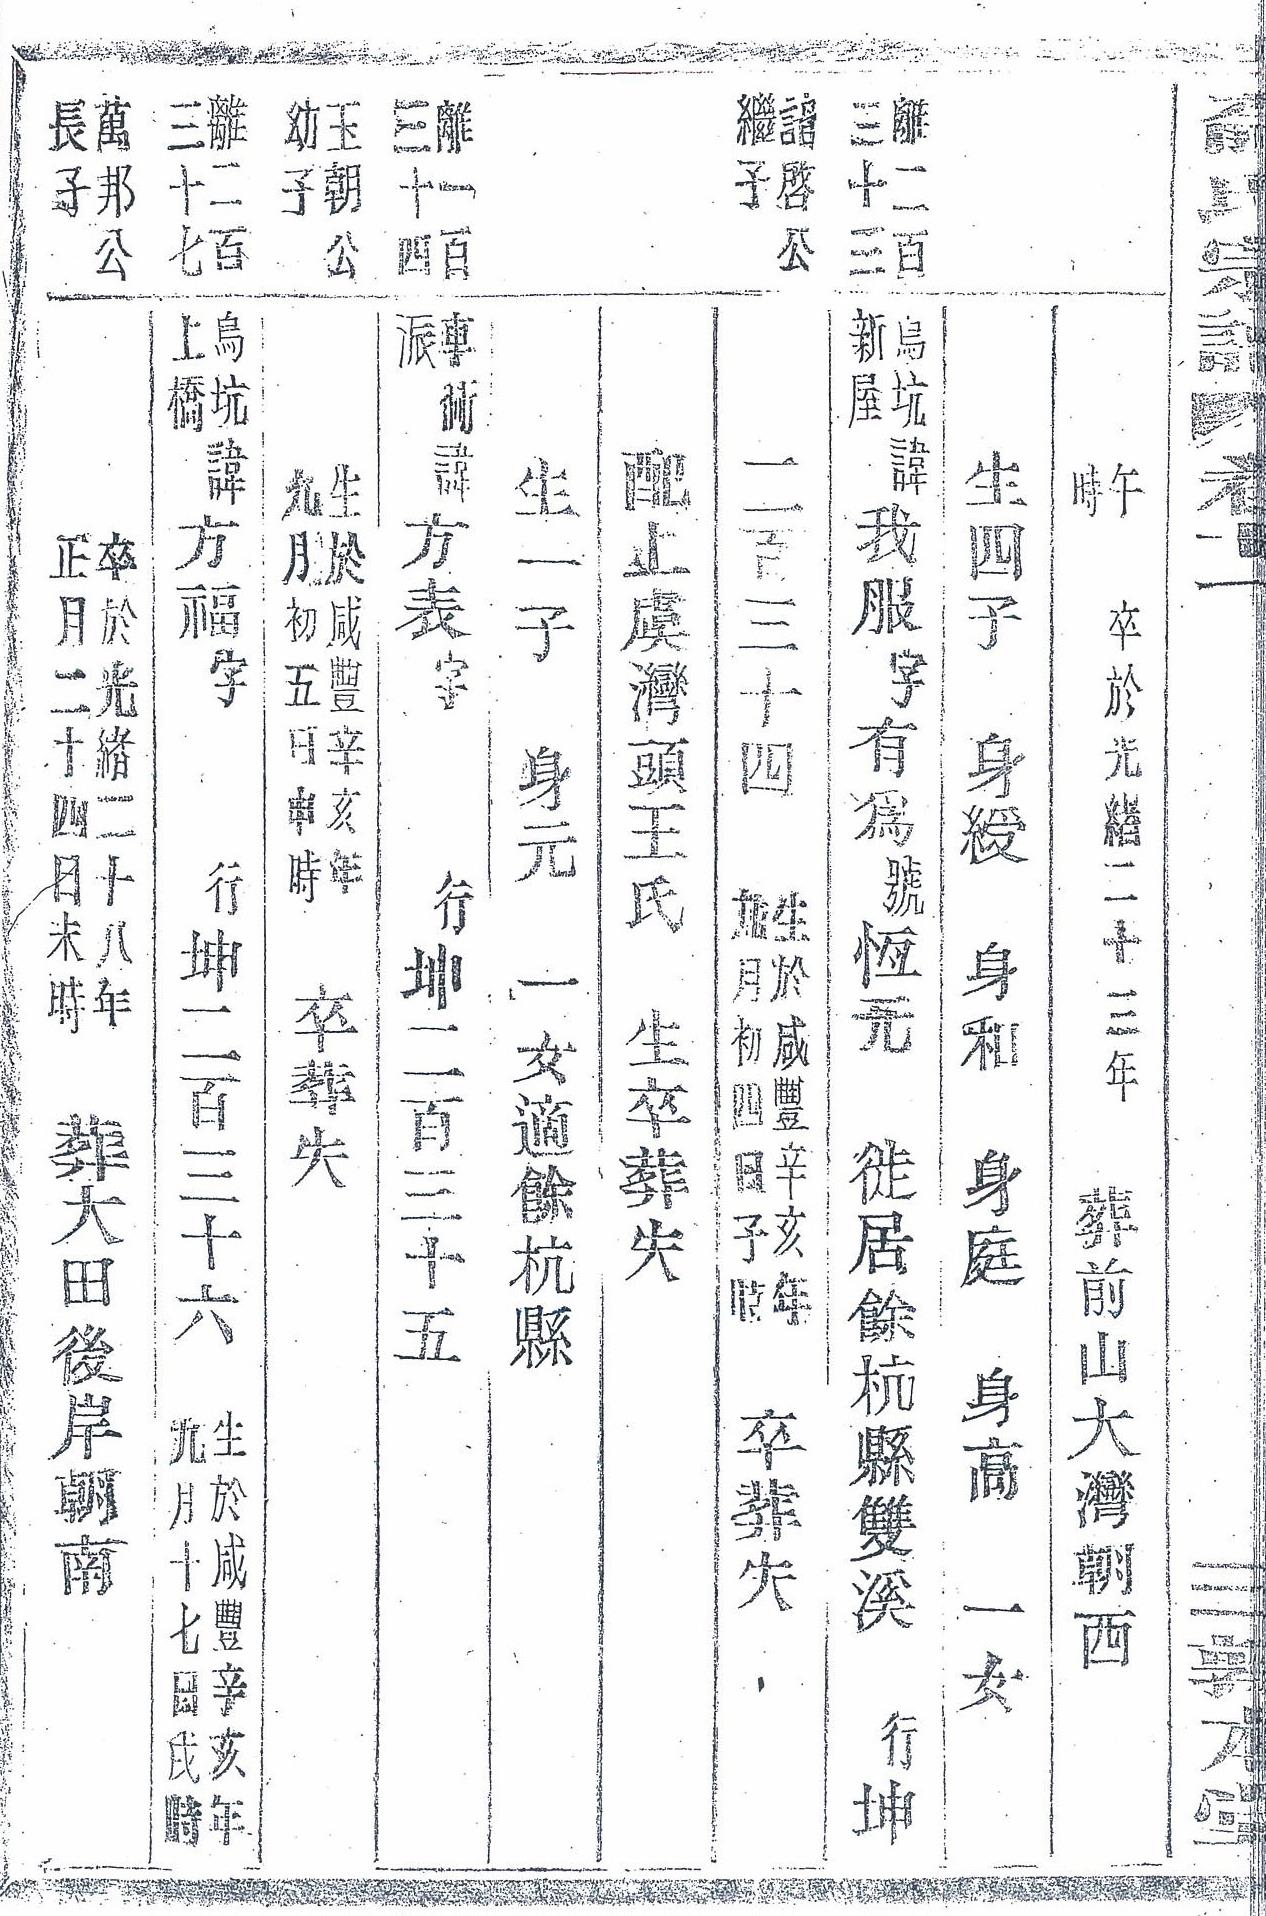 氏宗譜 卷二
敦本堂
午
時
卒於光緒二十三年
葬前山大灣朝西
生四子 身綬 身和 身庭 身高 一女
離二百
三十三
烏坑
新屋
諱我服字有爲號恆元 徙居餘杭縣雙溪 行坤
啓公
繼子
二百三十四
生於咸豐辛亥年
九月初四日子時
卒葬失
配上虞灣頭王氏 生卒葬失
生一子 身元 一女適餘杭縣
離一百
三十四
車衖
派
諱方表字 行坤二百三十五
玉朝公
幼子
生於咸豐辛亥年
九月初五日申時
卒葬失
離二百
三十七
烏坑
上橋
諱方福字 行坤二百三十六
生於咸豐辛亥年
九月十七日戌時
萬邦公
長子
卒於光緒二十八年
正月二十四日未時
葬大田後岸朝南